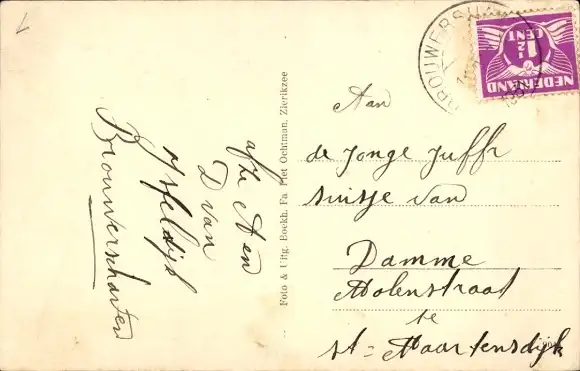 BROUWERSHAVEN
1½
CENT
NEDERLAND
Aan
de Jonge Juffr
Suitje van
Damme
Molenstraat
te
St = Maartensdijk
Foto & Uitg. Boekh. Fa Piet Ochtman, Zierikzee
afz A en
D van
IJseldijk
Brouwershaven